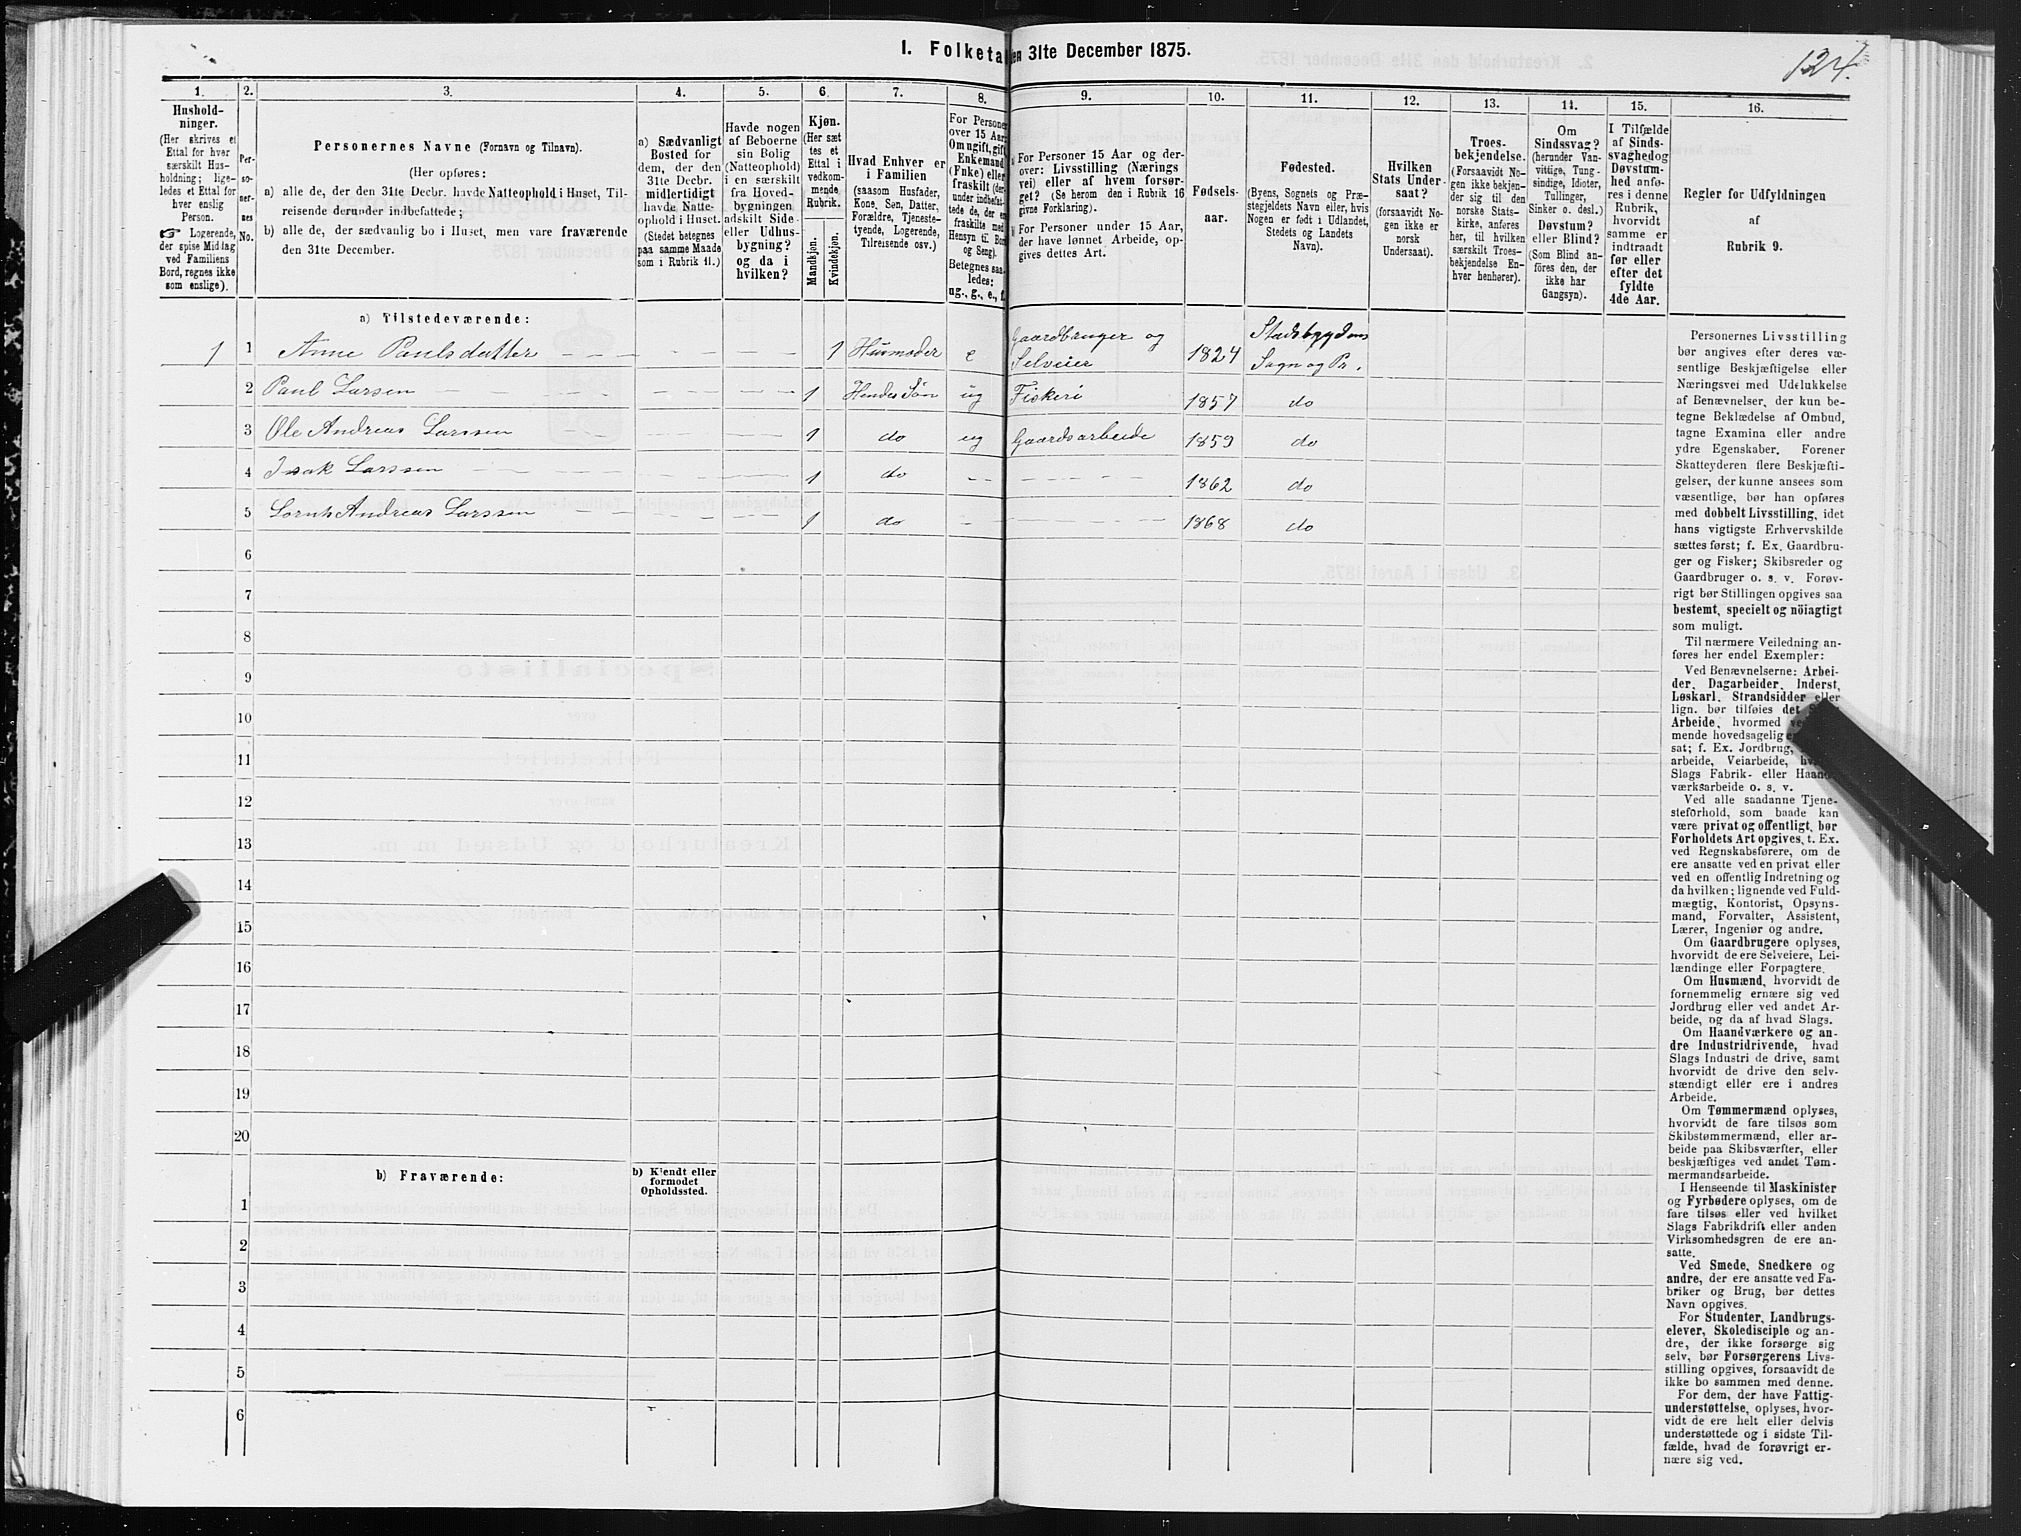 I. Folketa en 31te December 1875.
124.
1.
Hushold-
ninger.
(Her skrives et
Ettal for hver
særskilt Hus-
holdning; lige-
ledes et Ettal for
hver enslig
Person.
Logerende,
der spise Middag
ved Familiens
Bord, regnes ikke
som enslige).
2.
Per-
so-
ner-
nes
No.
3.
Personernes Navne (Fornavn og Tilnavn).
(Her opføres:
a) alle de, der den 31te Decbr. havde Natteophold i Huset, Til-
reisende derunder indbefattede;
b) alle de, der sædvanlig bo i Huset, men vare fraværende
den 31te December.
4.
a) Sædvanligt
Bosted for
dem, der den
31te Decbr.
midlertidigt
havde Natte-
ophold i Huset.
(Stedet betegnes
paa samme Maade
som i Rubrik 11.)
5.
Havde nogen
af Beboerne
sin Bolig
(Natteophold)
i en særskilt
fra Hoved-
bygningen
adskilt Side-
eller Udhus-
bygning?
og da i
hvilken?
6.
Kjøn.
(Her sæt
tes et
Ettal i
vedkom-
mende
Rubrik.
Mandkjøn.
Kvindekjøn.
7.
Hvad Enhver er
i Familien
(saasom Husfader,
Kone, Søn, Datter,
Forældre, Tjeneste-
tyende, Logerende,
Tilreisende osv.)
8.
For Personer
over 15 Aar:
Om ugift, gift,
Enkemand
(Enke) eller
fraskilt (der-
under indbefat-
tede de, der er
fraskilte med
Hensyn til Bord
og Seng).
Betegnes saa-
ledes:
ug., g., e., f.
9.
For Personer 15 Aar og der-
over: Livsstilling (Nærings
vei) eller af hvem forsør-
get? (Se herom den i Rubrik 16
givne Forklaring).
For Personer under 15 Aar,
der have lønnet Arbeide, op-
gives dettes Art.
10.
Fødsels-
aar.
11.
Fødested.
(Byens, Sognets og Præ-
stegjeldets Navn eller, hvis
Nogen er født i Udlandet,
Stedets og Landets
Navn).
12.
Hvilken
Stats Under-
saat?
(forsaavidt No-
gen ikke er
norsk
Undersaat).
13.
Troes-
bekjendelse.
(Forsaavidt No-
gen ikke bekjen-
der sig til den
norske Stats-
kirke, anføres
her, til hvilken
særskilt Troes-
bekjendelse En-
hver henhører).
14.
Om
Sindssvag?
(herunder Van-
vittige, Tung-
sindige, Idioter,
Tullinger,
Sinker o. desl.)
Døvstum?
eller Blind?
(Som Blind an-
føres den, der
ikke har
Gangsyn).
15.
I Tilfælde
af Sinds-
svaghed og
Døvstum-
hed anfø-
res i denne
Rubrik,
hvorvidt
samme er
indtraadt
før eller
efter det
fyldte
4de Aar.
16.
Regler for Udfyldningen
af
Rubrik 9.
a) Tilstedeværende:
1 1 Anne Paulsdatter 1 Husmoder e Gaardbruger og Selveier 1824 Stadsbygdens Sogn og Pr.
2 Paul Larsen 1 Hendes Søn ug Fiskeri 1857 do
3 Ole Andreas Larssen 1 do ug Gaardsarbeide 1859 do
4 Isak Larssen 1 do 1862 do
5 Andreas Larssen 1 do 1868 do
6
7
8
9
10
11
12
13
14
15
16
17
18
19
20
b) Fraværende:
b) Kjendt eller
formodet
Opholdssted.
1
2
3
4
5
6
Personernes Livsstilling
bør angives efter deres væ-
sentlige Beskjæftigelse eller
Næringsvei med Udelukkelse
af Benævnelser, der kun be-
tegne Beklædelse af Ombud,
tagne Examina eller andre
ydre Egenskaber. Forener
Skatteyderen flere Beskjæfti-
gelser, der kunne ansees som
væsentlige, bør han opføres
med dobbelt Livsstilling, idet
hans vigtigste Erhvervskilde
sættes først; f. Ex. Gaardbru-
ger og Fisker; Skibsreder og
Gaardbruger o. s. v. Forøv-
rigt bør Stillingen opgives saa
bestemt, specielt og nöiagtigt
som muligt.
Til nærmere Veiledning an-
føres her endel Exempler:
Ved Benævnelserne: Arbei-
der, Dagarbeider, Inderst,
Løskarl, Strandsidder eller
lign. bør tilføies det S
Arbeide, hvormed ve
mende hovedsagelig
sat; f. Ex. Jordbrug,
arbeide, Veiarbeide,
Slags Fabrik- eller Haand-
værksarbeide o. s. v.
Ved alle saadanne Tjene-
steforhold, som baade kan
være privat og offentligt, bør
Forholdets Art opgives, t. Ex.
ved Regnskabsførere, om de
ere ansatte ved en privat eller
ved en offentlig Indretning og
da hvilken; lignende ved Fuld-
mægtig, Kontorist, Opsyns-
mand, Forvalter, Assistent,
Lærer, Ingeniør og andre.
Om Gaardbrugere oplyses,
hvorvidt de ere Selveiere, Lei-
lændinge eller Forpagtere.
Om Husmænd, hvorvidt de
fornemmelig ernære sig ved
Jordbrug eller ved andet Ar-
beide, og da af hvad Slags.
Om Haandværkere og an-
dre Industridrivende, hvad
Slags Industri de drive, samt
hvorvidt de drive den selv-
stændigt eller ere i andres
Arbeide.
Om Tømmermænd oplyses,
hvorvidt de fare tilsøs som
Skibstømmermænd, eller ar-
beide paa Skibsværfter, eller
beskjæftiges ved andet Tøm-
mermandsarbeide.
I Henseende til Maskinister
og Fyrbødere oplyses, om de
fare tilsøs eller ved hvilket
Slags Fabrikdrift eller anden
Virksomhedsgren de ere an-
satte.
Ved Smede, Snedkere og
andre, der ere ansatte ved Fa-
briker og Brug, bør dettes
Navn opgives.
For Studenter, Landbrugs-
elever, Skoledisciple og an-
dre, der ikke forsørge sig
selv, bør Forsørgerens Livs-
stilling opgives, forsaavidt de
ikke bo sammen med denne.
For dem, der have Fattig-
understøttelse, oplyses, hvor-
vidt de ere helt eller delvis
understøttede og i sidste Til-
fælde, hvad de forøvrigt er-
nære sig ved.